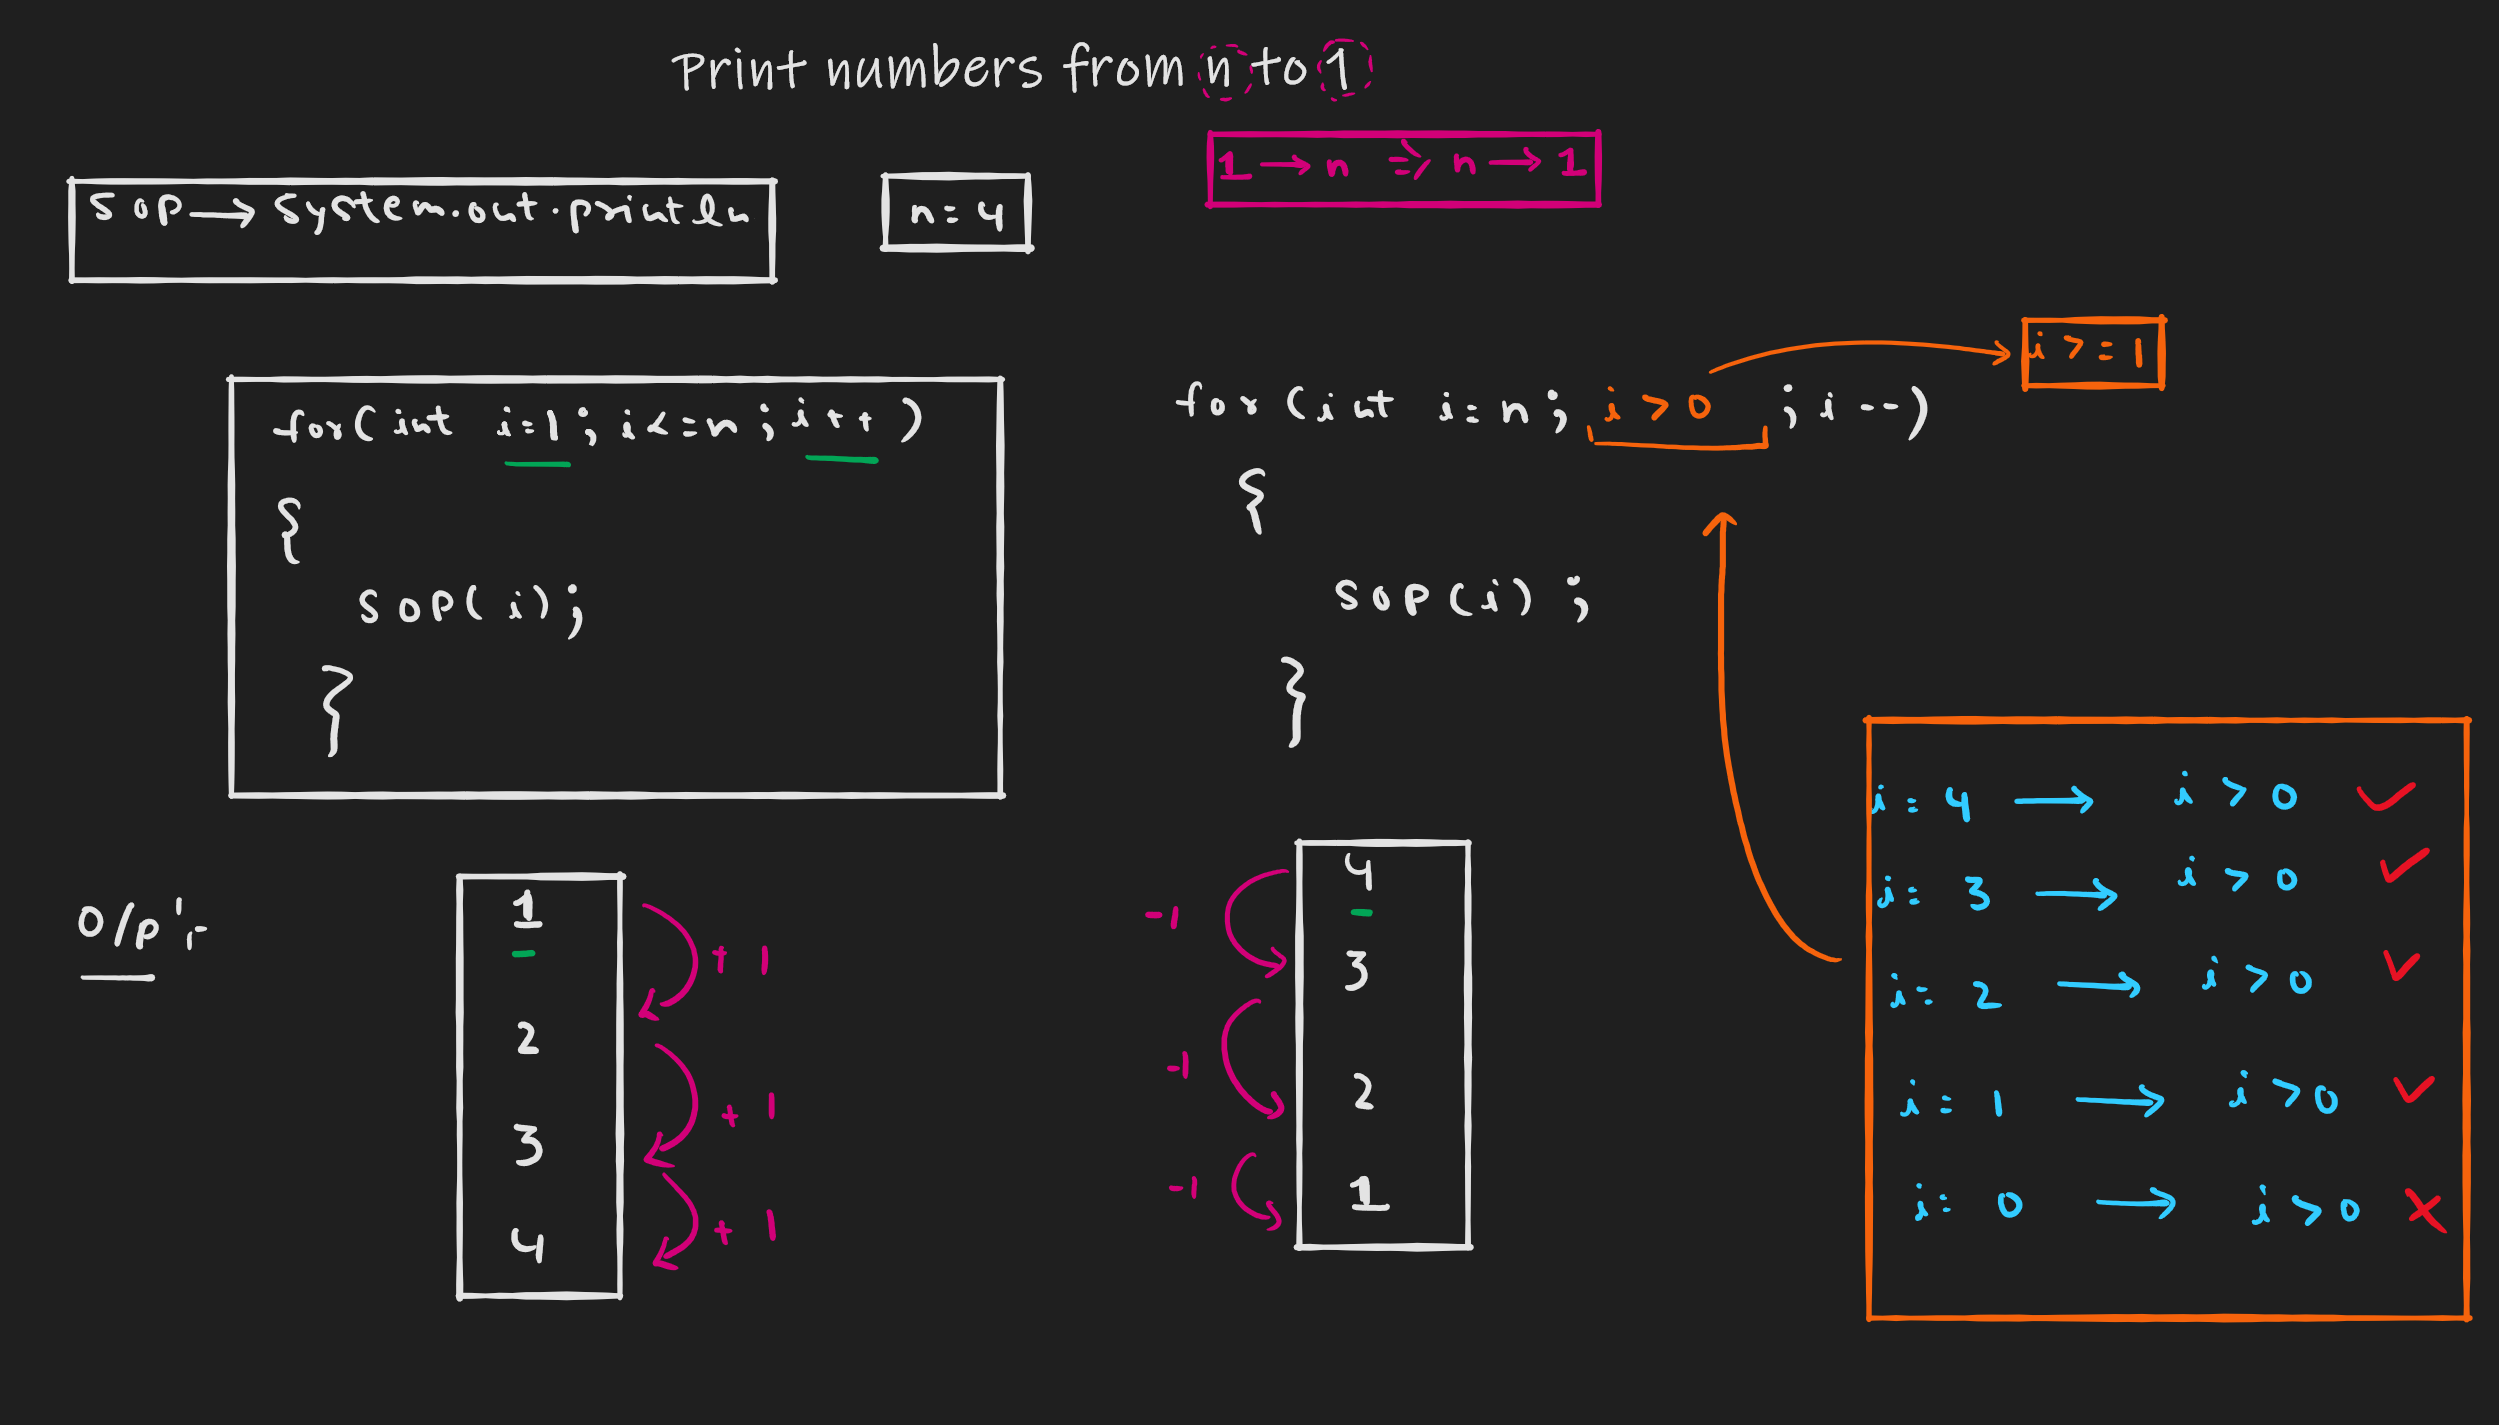 Print numbers from n to 1
1 → n ⇒ n → 1
SOP → System.out.println
n = 4
i >= 1
for (int i=1; i<=n; i++)
{
SOP(i);
}
for (int i=n; i>0 ; i--)
{
SOP(i);
}
O/p :-
1
2
3
4
+1
+1
+1
4
3
2
1
-1
-1
-1
i = 4 → i > 0 ✓
i = 3 → i > 0 ✓
i = 2 → i > 0 ✓
i = 1 → i > 0 ✓
i = 0 → i > 0 ✗